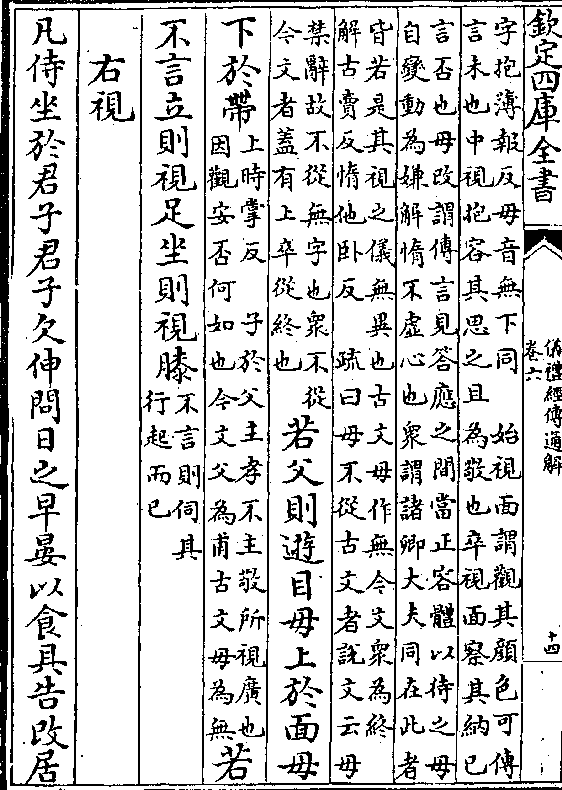 欽定四庫全書
儀禮經傳通解
卷六
十四
字抱薄報反毋音無下同 始視面謂觀其顔色可傳
言未也中視抱容其思之且為敬也卒視面察其納己
言否也毋改謂傳言見答應之間當正容體以待之毋
自變動為嫌解惰不虛心也衆謂諸卿大夫同在此者
皆若是其視之儀無異也古文毋作無今文衆為終
解古賣反惰他卧反 疏曰毋不從古文者説文云毋
禁辭故不從無字也衆不從
今文者蓋有上卒從終也
若父則遊目毋上於面毋
下於帶
上時掌反 子於父主孝不主敬所視廣也
因觀安否何如也今文父為甫古文毋為無
若
不言立則視足坐則視膝
不言則伺其
行起而已
右視
凡侍坐於君子君子欠伸問日之早晏以食具告改居